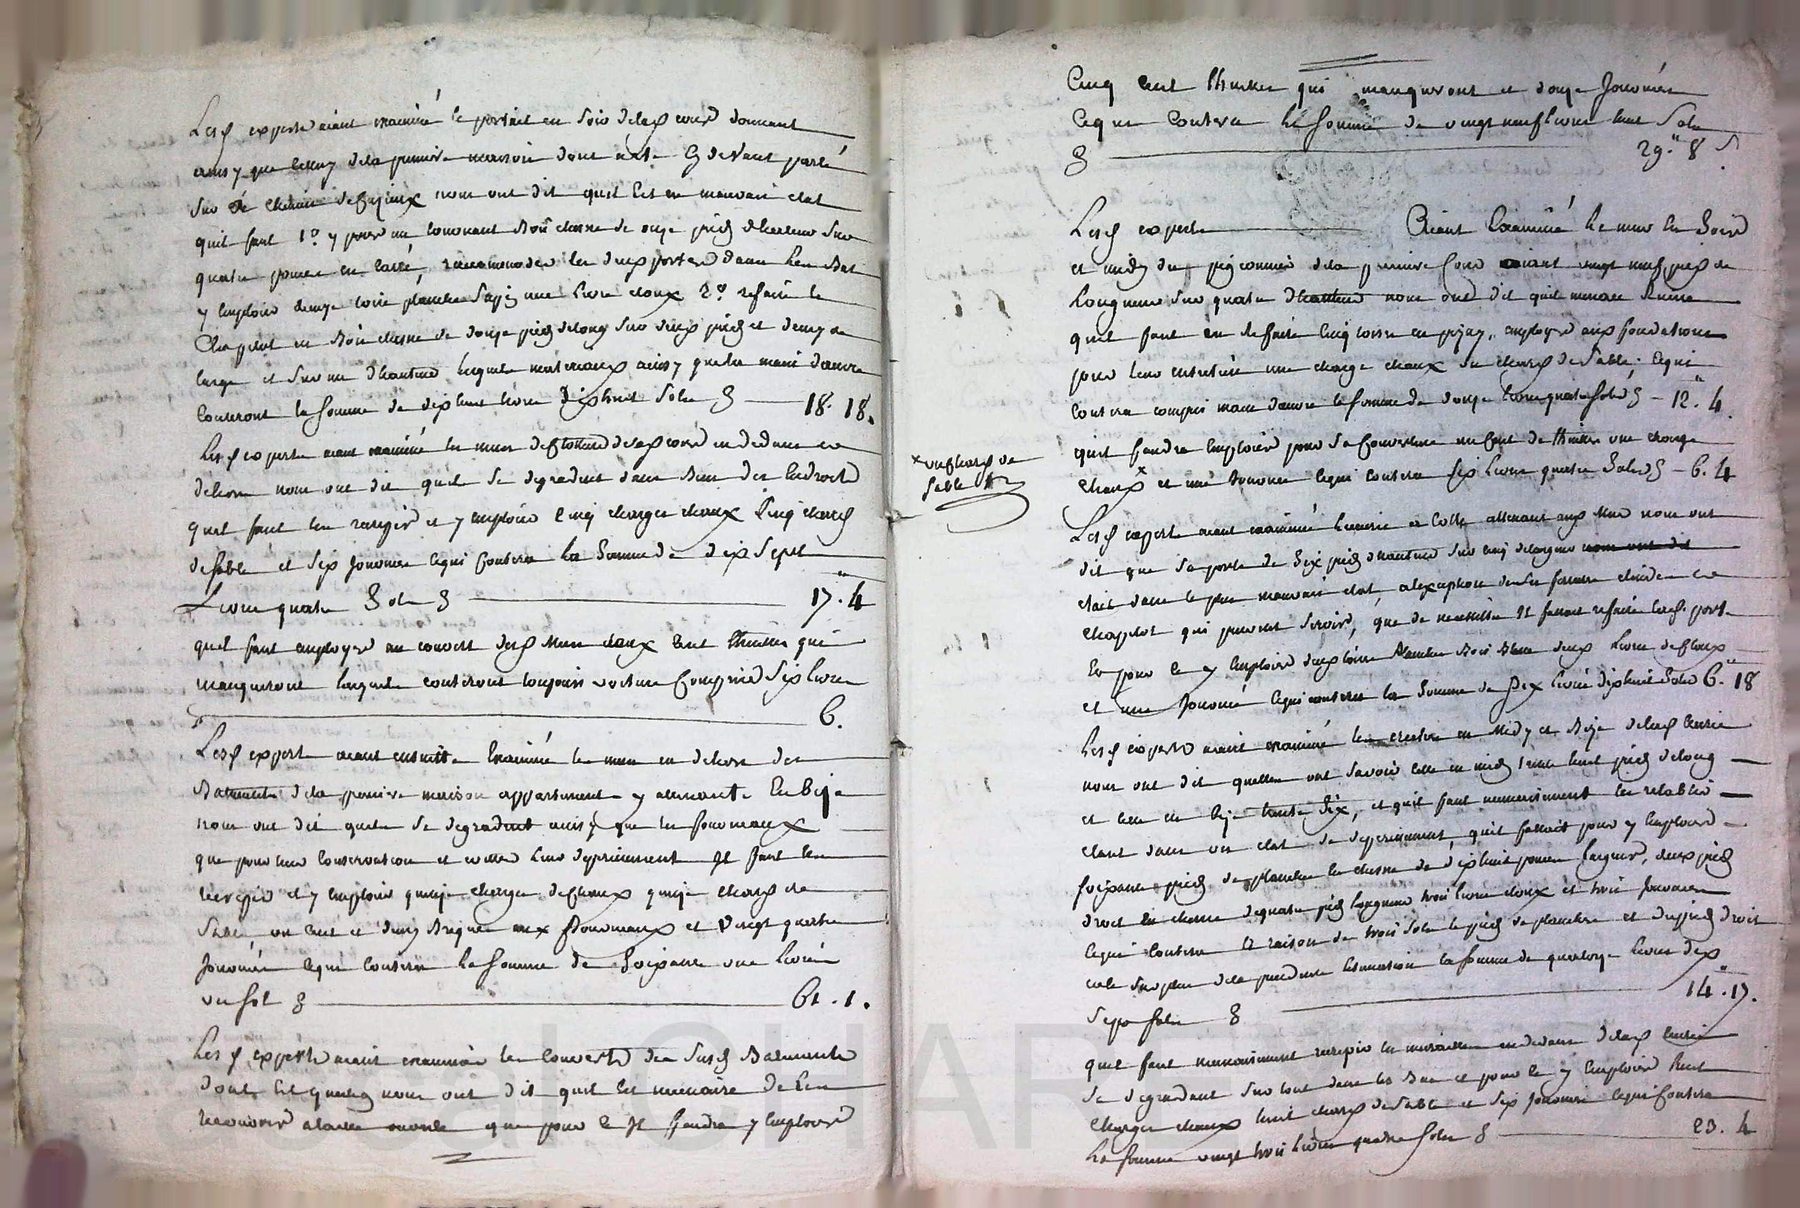 Lesd experts aiant examiné le portail en soir delad cour donnant
ainsy que celuy de la premiere maison dont a été cy devant parlé
sur le chemin nous ont dit quil est en mauvais etat
quil faut 1° y poser un bois chesne de onze pieds d'hauteur sur
quatre pouces en carré, racommoder les deux portes dans leur bas
y emploier demye toise planche sapin une livre cloux 2° refaire le
Chapitot en bois chesne de douze pieds de long sur deux pieds et demy de
large et sur un d'hauteur lesquels materiaux ainsy que la main d'œuvre
couteront la somme de dix huit livres dix huit sols 18. 18.
Lesd experts aiant examiné les murs de cloture delad cour en dedans et
dehors nous ont dit quils se degradent dans bien des endroits
quil faut les recrepir et y emploier cinq charges chaux cinq chards
de sable et six journées ce qui coutera la somme de dix sept
Livres quatre sols 17. 4
quil faut employer au couvert desd murs deux cent thuilles qui
manqueront lesquels couteront toujours voiture comprise six livres
6.
Lesd experts aiant ensuitte examiné les murs en dehors des
Batiments de la premiere maison appartements y attenants en bize
nous ont dit quils se degradent ainsy que les fourneaux
que pour leur conservation et eviter leur deperissement il faut les
recrepir et y emploier quinze charges de chaux quinze chards de
sable un cent et demy briques aux fourneaux et vingt quatre
journées ce qui coutera la somme de soixante une livres
un sol 61. 1.
Lesd experts aiant examiné les couverts des susd Batiments
dont est question nous ont dit quil est necessaire de les
recouvrir a taille ouverte que pour ce il faudra y emploier
Cinq cent thuilles qui manqueront et douze journées
ce qui coutera la somme de vingt neuf livres huit sols
29." 8 s
Lesd experts Aiant examiné le mur en soir
et midy du pigeonnier de la premiere cour aiant vingt neuf pieds de
longueur sur quatre d'hauteur nous ont dit quil menace ruine
quil faut en refaire cinq toises en pizay, employer aux fondations
pour leur entretien une charge chaux un chard de sable. ce qui
coutera compris main d'œuvre la somme de douze livres quatre sols 12." 4.
quil faudra emploier pour sa couverture un cent de thuilles une charge
chaux x et une journée ce qui coutera six livres quatre sols 6. 4
x un chard de
sable
Lesd experts aiant examiné l'ecurie a coté attenant aux murs nous ont
dit que sa porte de six pieds d'hauteur sur cinq de largeur nous ont dit
etait dans le plus mauvais etat a l'exception de la ferrure et
chapitot qui peuvent servir, que de necessité il fallait refaire lad. porte
et pour ce y emploier deux toises planches bois blanc deux livres de cloux
et une journée ce qui coutera la somme de six livres dix huit sols 6." 18
Lesd experts aiant examiné les creches en midy et bize delad ecurie
nous ont dit quelles ont savoir celle en midy trente huit pieds de long
et celle en bize trente six, et quil faut necessairement les retablir
etant dans un etat de deperissement, quil fallait pour y emploier
soixante pieds de planches en chesne de dix huit pouces largeur, deux pieds
droit en chesne de quatre pieds longueur trois livres cloux et trois journées
ce qui coutera a raison de trois sols le pied de planches et des pieds droit
la somme de quatorze livres dix
sept sols 14." 17.
quil faut necessairement recrepir les murailles en dedans delad ecurie
se degradant sur tout dans les bas et pour ce y emploier huit
charges chaux huit chards de sable et six journées ce qui coutera
la somme vingt trois livres quatre sols 23. 4